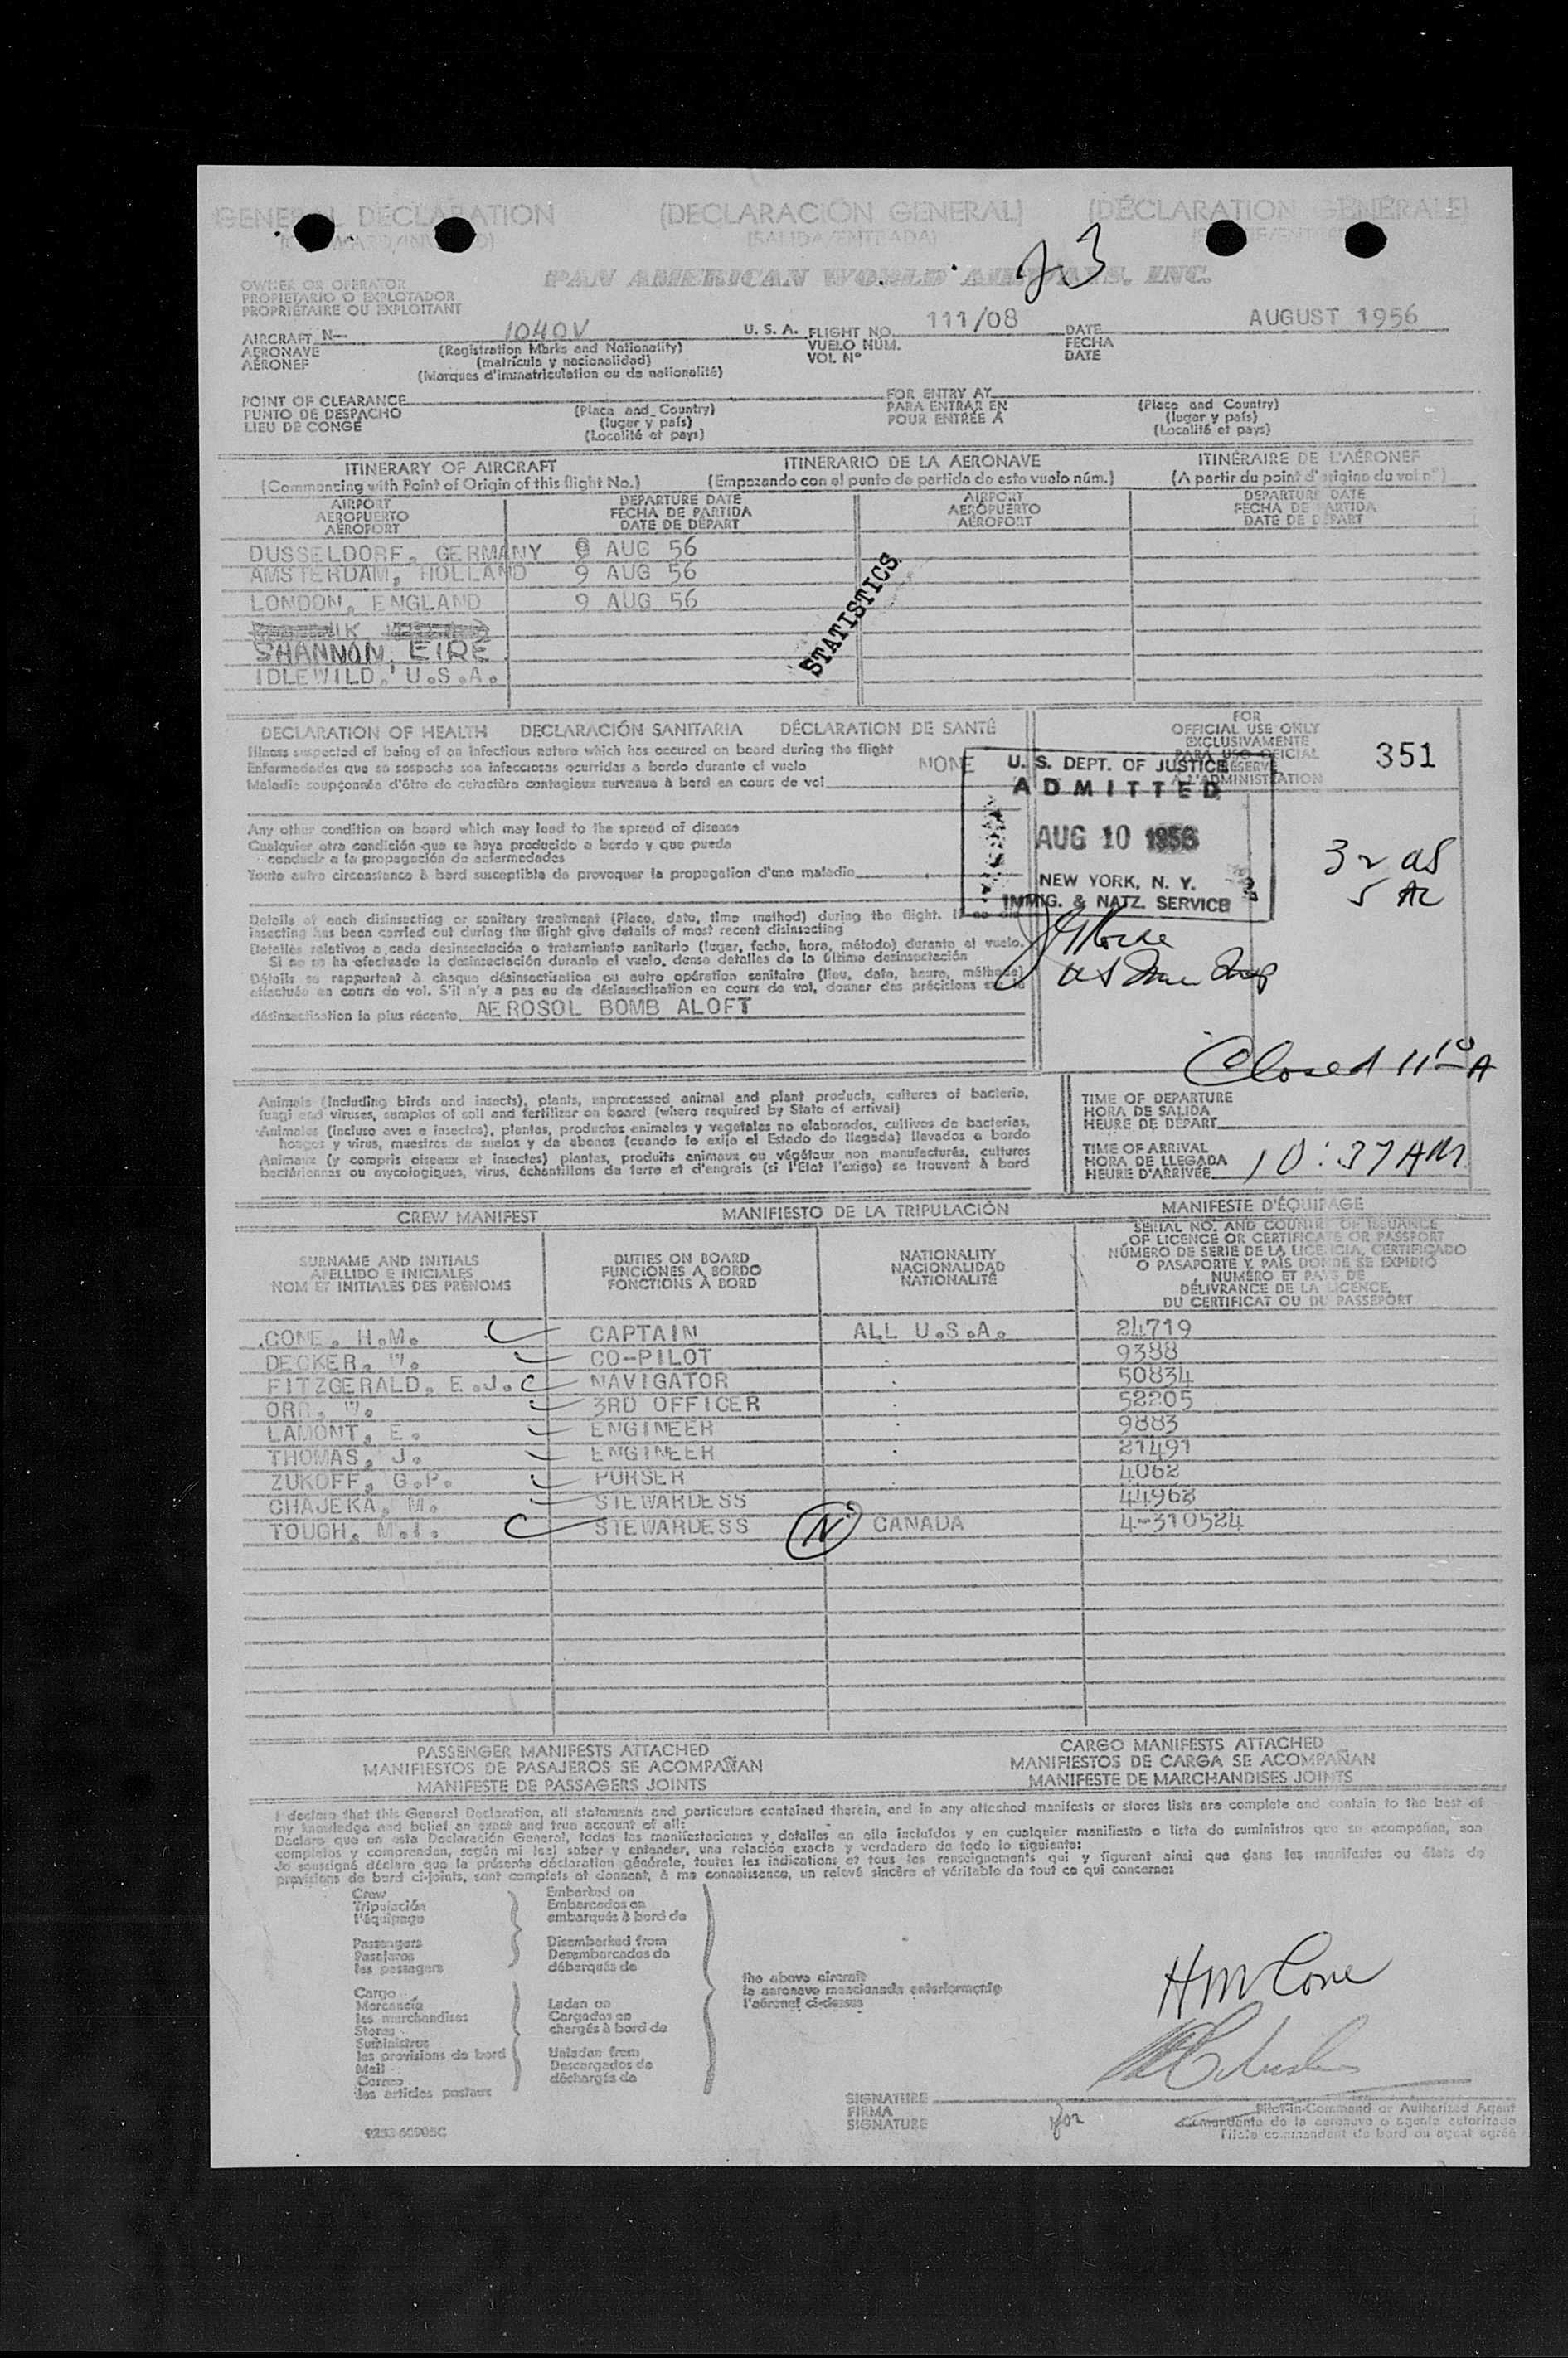 GENERAL DECLARATION (DECLARACIÓN GENERAL) (DÉCLARATION GÉNÉRALE)
(SALIDA/ENTRADA)
23
PAN AMERICAN WORLD AIRWAYS, INC.
OWNER OR OPERATOR
PROPIETARIO O EXPLOTADOR
PROPRIÉTAIRE OU EXPLOITANT
AIRCRAFT N- 1040V U. S. A. FLIGHT NO. 111/08 DATE AUGUST 1956
AERONAVE (Registration Marks and Nationality) VUELO NÚM. FECHA
AÉRONEF (matrícula y nacionalidad) VOL N° DATE
(Marques d'immatriculation ou de nationalité)
POINT OF CLEARANCE (Place and Country) FOR ENTRY AT (Place and Country)
PUNTO DE DESPACHO (lugar y país) PARA ENTRAR EN (lugar y país)
LIEU DE CONGÉ (Localité et pays) POUR ENTRÉE À (Localité et pays)
ITINERARY OF AIRCRAFT ITINERARIO DE LA AERONAVE ITINÉRAIRE DE L'AÉRONEF
(Commencing with Point of Origin of this flight No.) (Empezando con el punto de partida de este vuelo núm.) (A partir du point d'origine du vol n°)
AIRPORT DEPARTURE DATE AIRPORT DEPARTURE DATE
AEROPUERTO FECHA DE PARTIDA AEROPUERTO FECHA DE PARTIDA
AÉROPORT DATE DE DÉPART AÉROPORT DATE DE DÉPART
DUSSELDORF, GERMANY 9 AUG 56
AMSTERDAM, HOLLAND 9 AUG 56
LONDON, ENGLAND 9 AUG 56
SHANNON, EIRE
IDLEWILD, U.S.A.
STATISTICS
DECLARATION OF HEALTH DECLARACIÓN SANITARIA DÉCLARATION DE SANTÉ
Illness suspected of being of an infectious nature which has occured on board during the flight
Enfermedades que se sospecha son infecciosas ocurridas a bordo durante el vuelo
Maladie soupçonnée d'être de caractère contagieux survenue à bord en cours de vol NONE
FOR
OFFICIAL USE ONLY
EXCLUSIVAMENTE
PARA USO OFICIAL
RÉSERVÉ
À L'ADMINISTRATION
351
U. S. DEPT. OF JUSTICE
ADMITTED
AUG 10 1956
NEW YORK, N. Y.
IMMIG. & NATZ. SERVICE
32 US
5 AL
Any other condition on board which may lead to the spread of disease
Cualquier otra condición que se haya producido a bordo y que pueda
conducir a la propagación de enfermedades
Toute autre circonstance à bord susceptible de provoquer la propagation d'une maladie
Details of each disinsecting or sanitary treatment (Place, date, time method) during the flight. If no
insecting has been carried out during the flight give details of most recent disinsecting
Detalles relativos a cada desinsectación o tratamiento sanitario (lugar, fecha, hora, método) durante el vuelo.
Si no se ha efectuado la desinsectación durante el vuelo, dense detalles de la última desinsectación
Détails se rapportant à chaque désinsectisation ou autre opération sanitaire (lieu, date, heure, méthode)
effectuée en cours de vol. S'il n'y a pas eu de désinsectisation en cours de vol, donner des précisions
désinsectisation la plus récente AEROSOL BOMB ALOFT
Closed 11 10 A
Animals (Including birds and insects), plants, unprocessed animal and plant products, cultures of bacteria,
fungi and viruses, samples of soil and fertilizer on board (where required by State of arrival)
Animales (incluso aves e insectos), plantas, productos animales y vegetales no elaborados, cultivos de bacterias,
hongos y virus, muestras de suelos y de abonos (cuando lo exija el Estado de llegada) llevados a bordo
Animaux (y compris oiseaux et insectes) plantes, produits animaux ou végétaux non manufacturés, cultures
bactériennes ou mycologiques, virus, échantillons de terre et d'engrais (si l'État l'exige) se trouvant à bord
TIME OF DEPARTURE
HORA DE SALIDA
HEURE DE DÉPART
TIME OF ARRIVAL
HORA DE LLEGADA 10:37 AM
HEURE D'ARRIVÉE
CREW MANIFEST MANIFIESTO DE LA TRIPULACIÓN MANIFESTE D'ÉQUIPAGE
SURNAME AND INITIALS
APELLIDO E INICIALES
NOM ET INITIALES DES PRÉNOMS
DUTIES ON BOARD
FUNCIONES A BORDO
FONCTIONS À BORD
NATIONALITY
NACIONALIDAD
NATIONALITÉ
SERIAL NO. AND COUNTRY OF ISSUANCE
OF LICENCE OR CERTIFICATE OR PASSPORT
NÚMERO DE SERIE DE LA LICENCIA, CERTIFICADO
O PASAPORTE Y PAÍS DONDE SE EXPIDIÓ
NUMÉRO ET PAYS DE
DÉLIVRANCE DE LA LICENCE,
DU CERTIFICAT OU DU PASSEPORT
CONE, H.M. CAPTAIN ALL U.S.A. 24719
DECKER, W. CO-PILOT 9388
FITZGERALD, E.J. NAVIGATOR 50834
ORR, W. 3RD OFFICER 52205
LAMONT, E. ENGINEER 9883
THOMAS, J. ENGINEER 21491
ZUKOFF, G.P. PURSER 4062
CHAJEKA, M. STEWARDESS 44968
TOUGH, M.I. STEWARDESS N CANADA 4-310524
PASSENGER MANIFESTS ATTACHED CARGO MANIFESTS ATTACHED
MANIFIESTOS DE PASAJEROS SE ACOMPAÑAN MANIFIESTOS DE CARGA SE ACOMPAÑAN
MANIFESTE DE PASSAGERS JOINTS MANIFESTE DE MARCHANDISES JOINTS
I declare that this General Declaration, all statements and particulars contained therein, and in any attached manifests or stores lists are complete and contain to the best of
my knowledge and belief an exact and true account of all:
Declaro que en esta Declaración General, todas las manifestaciones y detalles en ella incluídos y en cualquier manifiesto o lista de suministros que se acompañan, son
completos y comprenden, según mi leal saber y entender, una relación exacta y verdadera de todo lo siguiente:
Je soussigné déclare que la présente déclaration générale, toutes les indications et tous les renseignements qui y figurent ainsi que dans les manifestes ou états de
provisions de bord ci-joints, sont complets et donnent, à ma connaissance, un relevé sincère et véritable de tout ce qui concerne:
Crew Embarked on
Tripulación Embarcados en
l'équipage embarqués à bord de
Passengers Disembarked from
Pasajeros Desembarcados de
les passagers débarqués de
the above aircraft
la aeronave mencionada anteriormente
l'aéronef ci-dessus
Cargo
Mercancía Laden on
les marchandises Cargados en
Stores chargés à bord de
Suministros
les provisions de bord Unladen from
Mail Descargados de
Correo déchargés de
les articles postaux
HM Cone
SIGNATURE
FIRMA
SIGNATURE
for
Pilot-in-Command or Authorized Agent
Comandante de la aeronave o agente autorizado
Pilote commandant de bord ou agent agréé